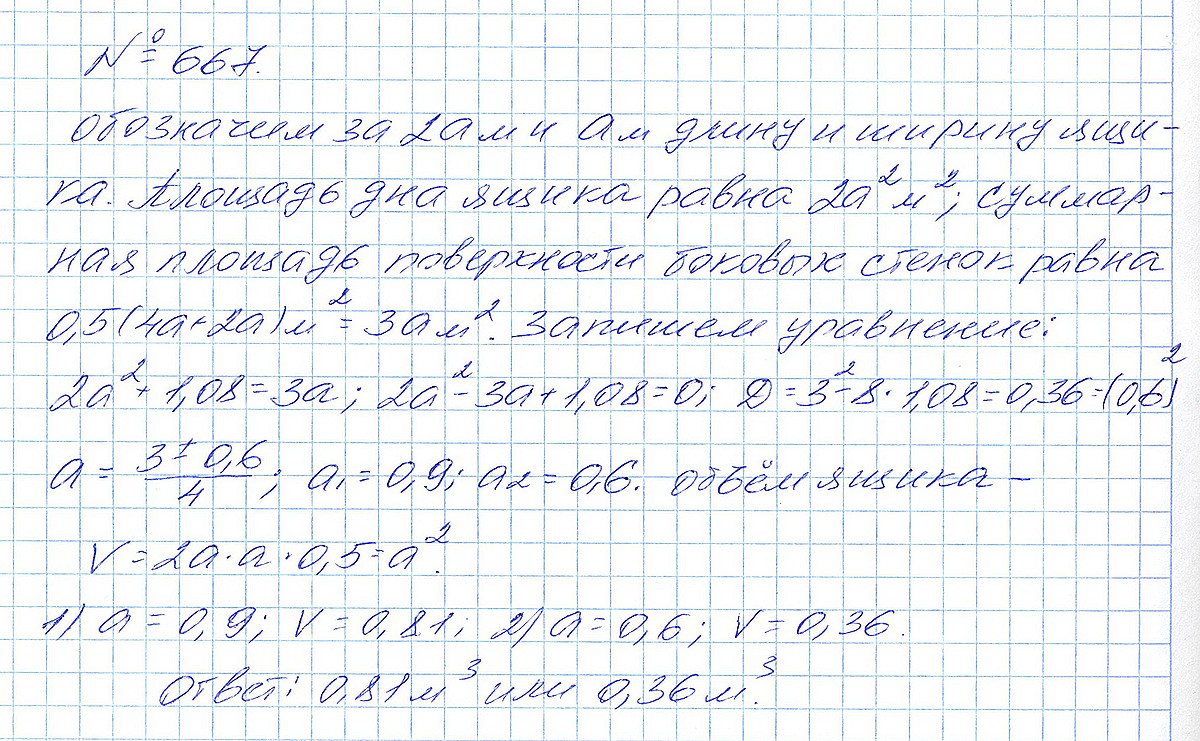 № 667.
Обозначем за 2а м и а м длину и ширину ящи-
ка. Площадь дна ящика равна 2а² м²; суммар-
ная площадь поверхности боковых стенок равна
0,5(4а+2а)м² = 3а м². Запишем уравнение:
2а² + 1,08 = 3а; 2а² - 3а + 1,08 = 0; D = 3² - 8 · 1,08 = 0,36 = (0,6)²
а = (3 ± 0,6)/4; а₁ = 0,9; а₂ = 0,6. Объём ящика –
V = 2а · а · 0,5 = а².
1) а = 0,9; V = 0,81; 2) а = 0,6; V = 0,36.
Ответ: 0,81 м³ или 0,36 м³.